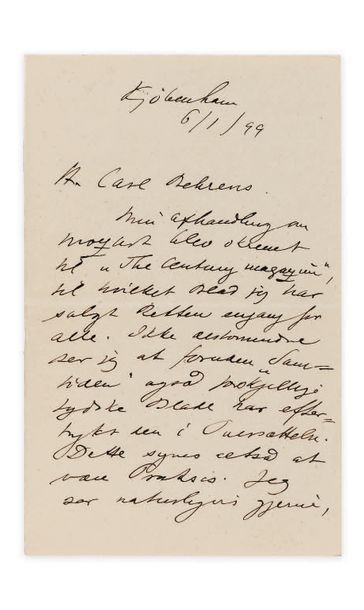 Kjøbenham
6/1/99
Hr. Carl Behrens.
Min afhandling om
Mozart blev skrevet
til „The Century magazine",
til hvilket Blad jeg har
solgt Retten engang for
alle. Ikke destomindre
ser jeg at foruden „Sam=
tiden" også forskjellige
tydske Blade har efter-
trykt den i Oversættelse.
Dette synes altså at
være Praksis. Jeg
ser naturligvis gjerne,